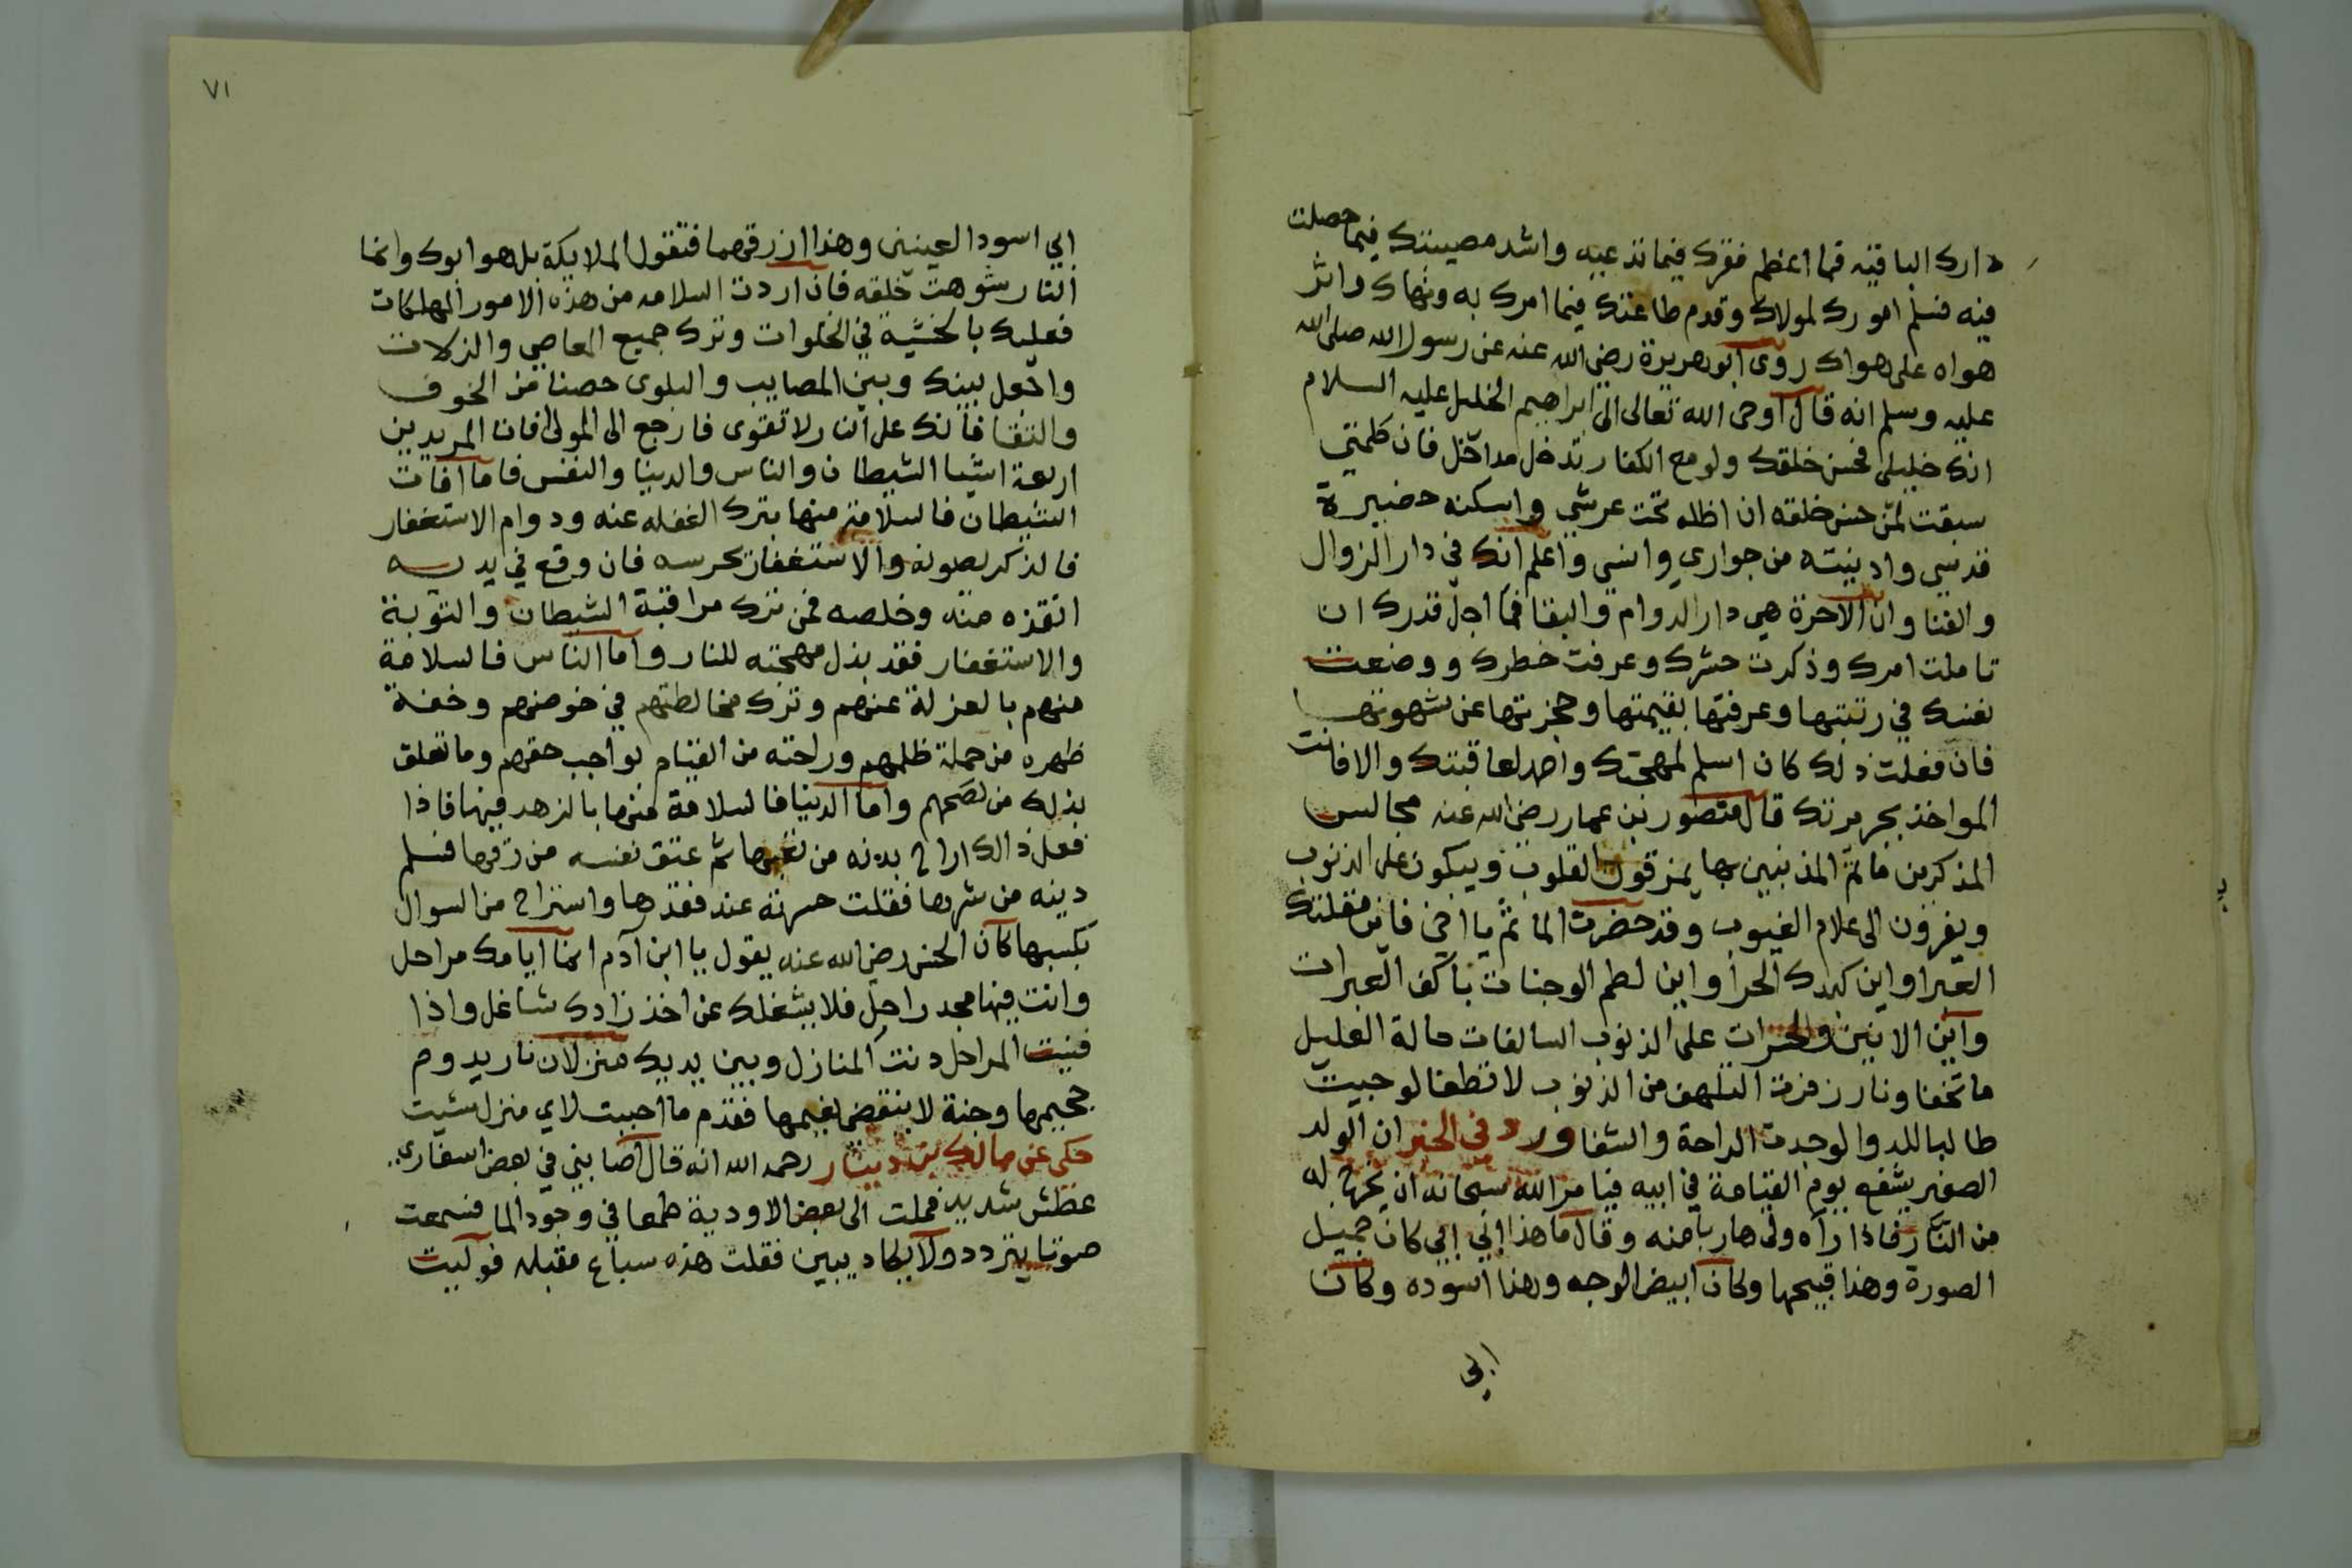 دارك الباقيه فما اعظم فقرك فيما تدعيه واشد مصيبتك فيما حصلت
فيه فسلم امورك لمولاك وقدم طاعتك فيما امرك به ونهاك واثر
هواه على هواك روى ابو هريرة رضي الله عنه عن رسول الله صلى الله
عليه وسلم انه قال اوحى الله تعالى الى ابراهيم الخليل عليه السلام
انك خليلي فحسن خلقك ولو مع الكفار تدخل مداخل فان كلمتي
سبقت لمن حسن خلقه ان اظله تحت عرشي واسكنه حضيرة
قدسي وادنيته من جواري وانسي واعلم انك في دار الزوال
والفنا وان الاخرة هي دار الدوام والبقا فما اجل قدرك ان
تاملت امرك وذكرت حشرك وعرفت خطرك ووضعت
نفسك في رتبتها وعرفتها بقيمتها وحجزتها عن شهوتها
فان فعلت ذلك كان اسلم لمهجتك واحمد لعاقبتك والا فانت
المواخذ بجريرتك قال منصور بن عمار رضي الله عنه مجالس
المذكرين مأتم المذنبين بها يمزقون القلوب ويبكون على الذنوب
ويفرون الى علام الغيوب وقد حضرت الماتم يا اخي فاين مقلتك
العبرا واين كبدك الحرا واين لطم الوجنات باكف العبرات
واين الانين والحسرات على الذنوب السالفات حالة العليل
ما تخفا ونار زفرة التلهف من الذنوب لا تطفا لو جيت
طالبا للدوا لوجدت الراحة والشفا ورد في الخبر ان الولد
الصغير يشفع يوم القيامة في ابيه فيامر الله سبحانه ان يخرج له
من النار فاذا رآه ولى هاربا منه وقال ما هذا ابي ابي كان جميل
الصورة وهذا قبيحها وكان ابيض الوجه وهذا اسوده وكان
ابي
٧١
ابي اسود العينين وهذا ازرقهما فتقول الملايكة بل هو ابوك وانما
النار شوهت خلقه فان اردت السلامه من هذه الامور المهلكات
فعليك بالخشية في الخلوات وترك جميع المعاصي والزلات
واجعل بينك وبين المصايب والبلوى حصنا من الخوف
والتقا فانك على النار لا تقوى فارجع الى المولى افات المريدين
اربعة اشيا الشيطان والناس والدنيا والنفس فاما آفات
الشيطان فالسلامة منها بترك الغفله عنه ودوام الاستغفار
فالذكر يصونه والاستغفار يحرسه فان وقع في يديه
انقذه منه وخلصه فمن ترك مراقبة الشيطان والتوبة
والاستغفار فقد بذل مهجته للنار واما الناس فالسلامة
منهم بالعزلة عنهم وترك مخالطتهم في خوضهم وخفة
ظهره من حملة ظلمهم وراحته من القيام بواجب حقهم وما تعلق
بذلك من نصحهم واما الدنيا فالسلامة منها بالزهد فيها فاذا
فعل ذالك اراح بدنه من تعبها ثم عتق نفسه من رقها فسلم
دينه من شرها فقلت حسرته عند فقدها واستراح من السوال
بكسبها كان الحسن رضي الله عنه يقول يا ابن آدم انما ايامك مراحل
وانت فيها مجد راحل فلا يشغلك عن اخذ زادك شاغل واذا
فنيت المراحل دنت المنازل وبين يديك منزلان نار يدوم
جحيمها وجنة لا ينقضي نعيمها فقدم ما احببت لاي منزل شيت
حكى عن مالك بن دينار رحمه الله انه قال اصابني في بعض اسفاري
عطش شديد فملت الى بعض الاودية طمعا في وجود الما فسمعت
صوتا يتردد ولا يكاد يبين فقلت هذه سباع مقبله فوليت